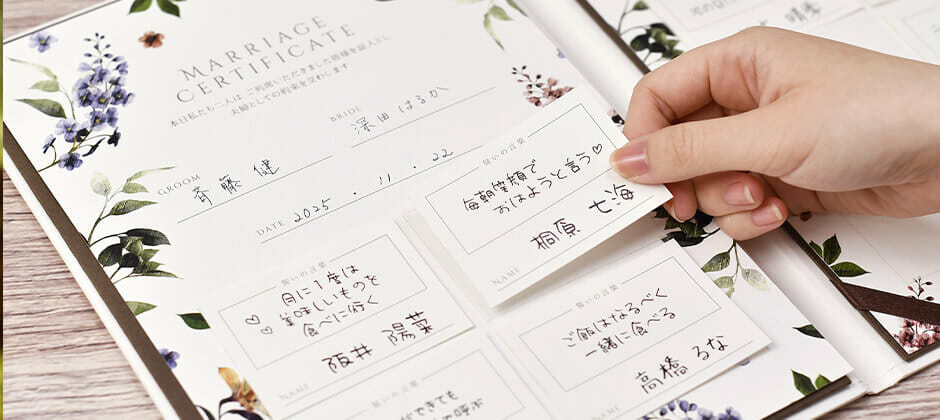 MARRIAGE
CERTIFICATE
本日私たち二人は ご列席いただきました皆様を証人とし
夫婦としての約束を交わします
GROOM 斉藤 健
BRIDE 深田 はるか
DATE 2025 . 11 . 22
誓いの言葉
毎朝笑顔で
おはようと言う♡
NAME 桐原 七海
誓いの言葉
月に1度は
美味しいものを
食べに行く
NAME 阪井 陽菜
誓いの言葉
ご飯はなるべく
一緒に食べる
NAME 高橋 るな
誓いの言葉
できても